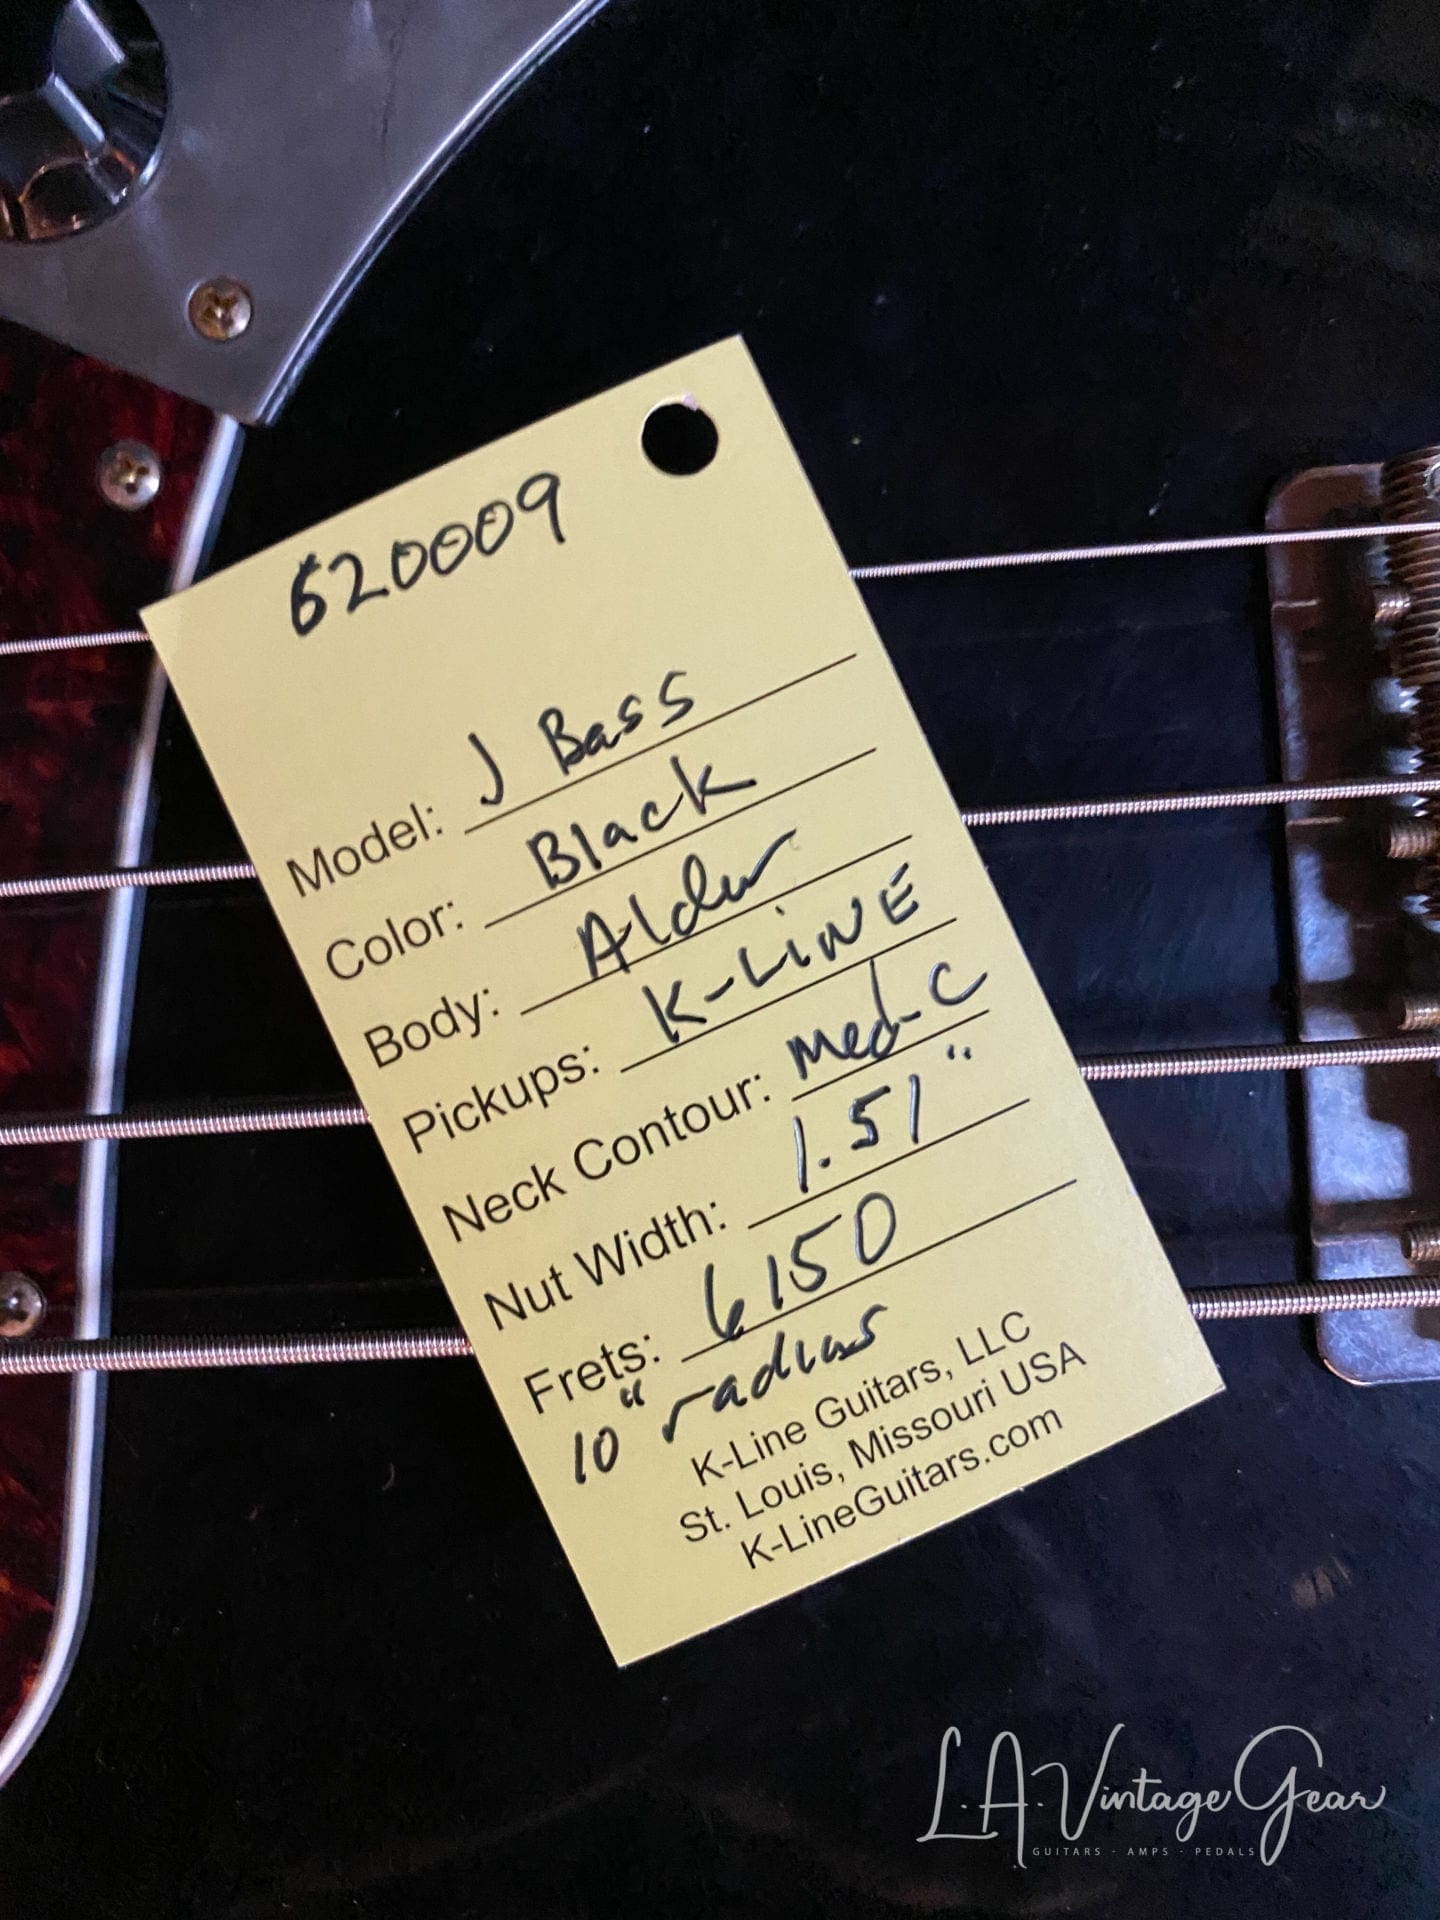 620009
Model: J Bass
Color: Black
Body: Alder
Pickups: K-LiNE
Neck Contour: Med-C
Nut Width: 1.51"
Frets: 6150
10" radius
K-Line Guitars, LLC
St. Louis, Missouri USA
K-LineGuitars.com
L.A. Vintage Gear
GUITARS · AMPS · PEDALS